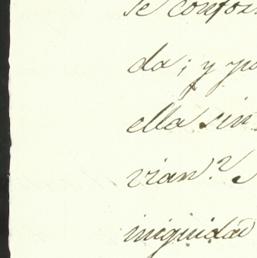 se confor
da; y po
ella sin
vian.n S
iniquidad